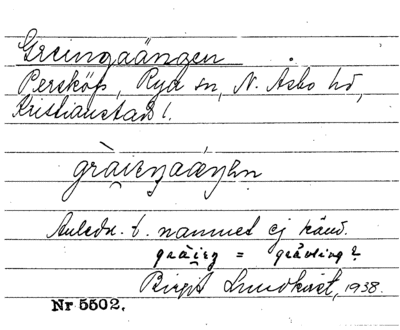 Greingaängen
Persköp, Rya sn, N. Åsbo hd,
Kristianstads l.
Anledn. t. namnet ej känd.
= grävling?
Birgit Lundkvist, 1938.
Nr 5502.